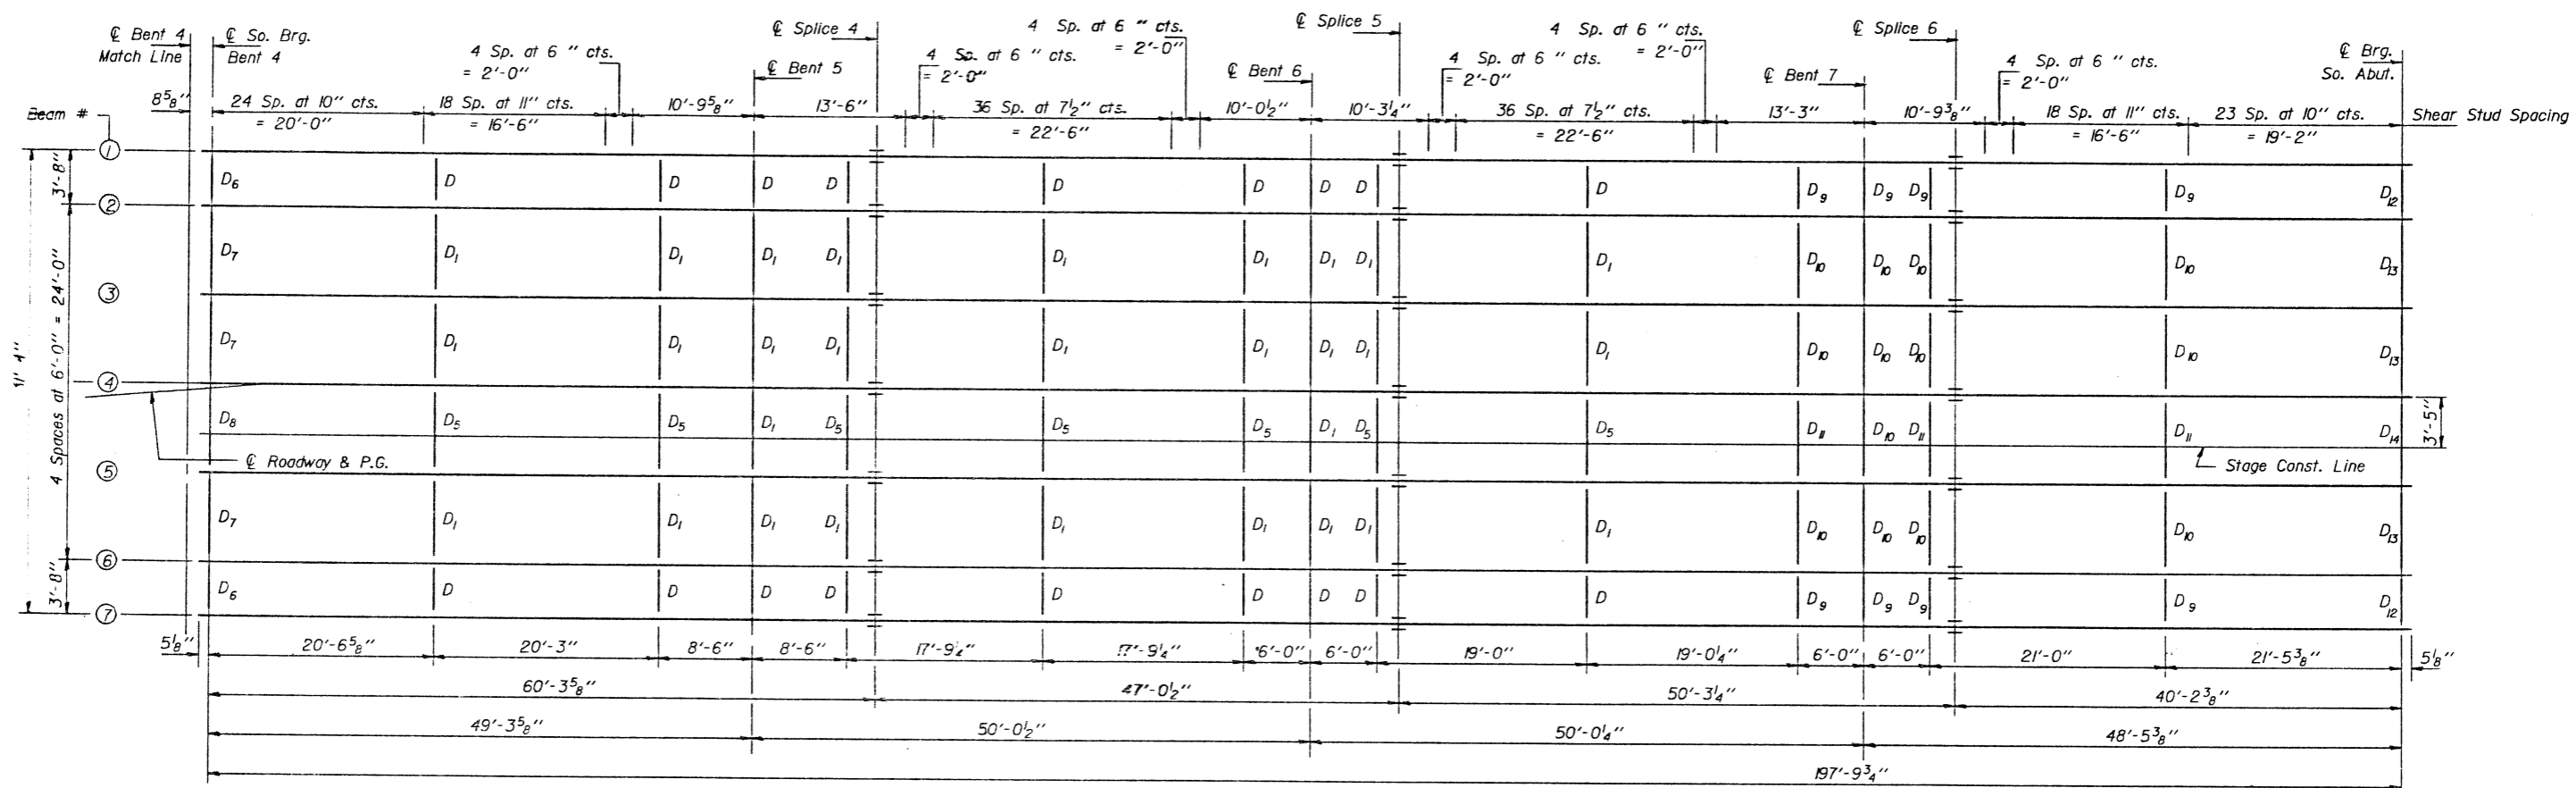 ℄ Bent 4
Match Line
℄ So. Brg.
Bent 4
4 Sp. at 6 " cts.
= 2'-0"
℄ Splice 4
℄ Bent 5
4 Sp. at 6 " cts.
= 2'-0"
4 Sp. at 6 " cts.
= 2'-0"
℄ Bent 6
℄ Splice 5
4 Sp. at 6 " cts.
= 2'-0"
4 Sp. at 6 " cts.
= 2'-0"
℄ Bent 7
℄ Splice 6
4 Sp. at 6 " cts.
= 2'-0"
℄ Brg.
So. Abut.
Beam #
8 5/8"
24 Sp. at 10" cts.
= 20'-0"
18 Sp. at 11" cts.
= 16'-6"
10'-9 5/8"
13'-6"
36 Sp. at 7 1/2" cts.
= 22'-6"
10'-0 1/2"
10'-3 1/4"
36 Sp. at 7 1/2" cts.
= 22'-6"
13'-3"
10'-9 3/8"
18 Sp. at 11" cts.
= 16'-6"
23 Sp. at 10" cts.
= 19'-2"
Shear Stud Spacing
1
3'-8"
D6 D D D D D D D D D D9 D9 D9 D9 D12
2
D7 D1 D1 D1 D1 D1 D1 D1 D1 D1 D10 D10 D10 D10 D13
3
4 Spaces at 6'-0" = 24'-0"
D7 D1 D1 D1 D1 D1 D1 D1 D1 D1 D10 D10 D10 D10 D13
4
D8 D5 D5 D1 D5 D5 D5 D1 D5 D5 D11 D10 D11 D11 D14
3'-5"
℄ Roadway & P.G.
Stage Const. Line
5
D7 D1 D1 D1 D1 D1 D1 D1 D1 D1 D10 D10 D10 D10 D13
6
3'-8"
D6 D D D D D D D D D D9 D9 D9 D9 D12
7
5 1/8"
20'-6 5/8"
20'-3"
8'-6"
8'-6"
17'-9 1/4"
17'-9 1/4"
6'-0"
6'-0"
19'-0"
19'-0 1/4"
6'-0"
6'-0"
21'-0"
21'-5 3/8"
5 1/8"
60'-3 5/8"
47'-0 1/2"
50'-3 1/4"
40'-2 3/8"
49'-3 5/8"
50'-0 1/2"
50'-0 1/4"
48'-5 3/8"
197'-9 3/4"